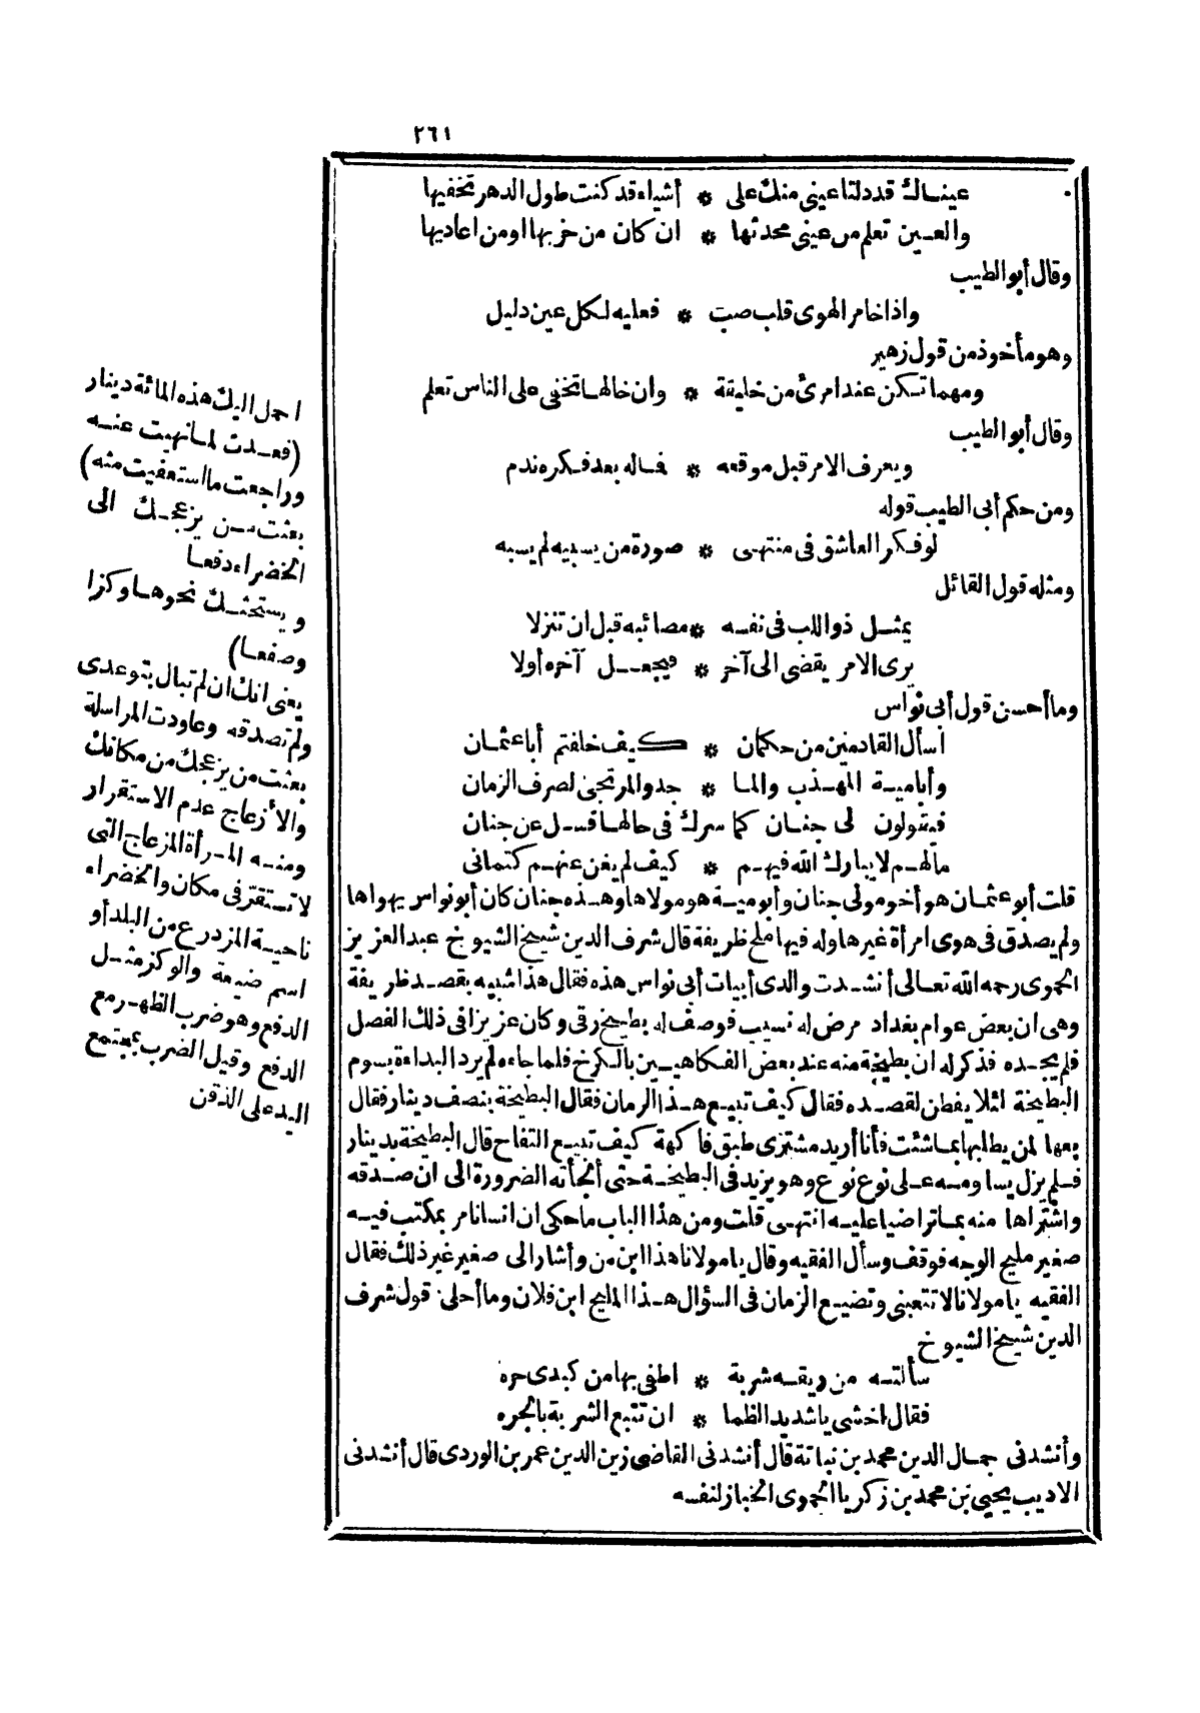 ٢٦١
عيناك قد دلتا عيني منك على * أشياء قد كنت طول الدهر تخفيها
والعين تعلم من عيني محدثها * ان كان من حزبها اومن اعاديها
وقال أبو الطيب
واذا خامر الهوى قلب صب * فعليه لكل عين دليل
وهو مأخوذ من قول زهير
ومهما تكن عند امرئ من خليقة * وان خالها تخفى على الناس تعلم
وقال أبو الطيب
ويعرف الامر قبل موقعه * فماله بعد فكره ندم
ومن حكم أبى الطيب قوله
لو فكر العاشق فى منتهى * صورة من يسبيه لم يسبه
ومثله قول القائل
يمثل ذو اللب فى نفسه * مصائبه قبل ان تنزلا
يرى الامر يقضى الى آخر * فيجعل آخره أولا
وما أحسن قول أبى نواس
أسأل القادمين من حكمان * كيف خلفتم أبا عثمان
وأبا مية المهذب والما * جد والمرتجى لصرف الزمان
فيقولون لى جنان كما سرك فى حالها فسل عن جنان
مالهم لا يبارك الله فيهم * كيف لم يغن عنهم كتمانى
قلت أبو عثمان هو أخو مولى جنان وأبو مية هو مولاها وهذه جنان كان أبو نواس يهواها
ولم يصدق فى هوى امرأة غيرها وله فيها ملح ظريفة قال شرف الدين شيخ الشيوخ عبد العزيز
الحموى رحمه الله تعالى أنشدت والدى أبيات أبى نواس هذه فقال هذا شبيه بقصد ظريفة
وهى ان بعض عوام بغداد مرض له نسيب فوصف له بطيخ رقى وكان عزيزا فى ذلك الفصل
فلم يجده فذكر له ان بطيخة منه عند بعض الفكاهيين بالكرخ فلما جاءه لم يرد البداءة بسوم
البطيخة لئلا يفطن لقصده فقال كيف تبيع هذا الرمان فقال البطيخة بنصف دينار فقال
بعها لمن يطلبها بما شئت فأنا أريد مشترى طبق فاكهة كيف تبيع التفاح قال البطيخة بدينار
فلم يزل يساومه على نوع نوع وهو يزيد فى البطيخة حتى ألجأته الضرورة الى ان صدقه
واشتراها منه بما تراضيا عليه انتهى قلت ومن هذا الباب ما حكى ان انسانا مر بمكتب فيه
صغير مليح الوجه فوقف وسأل الفقيه وقال يا مولانا هذا ابن من وأشار الى صغير غير ذلك فقال
الفقيه يا مولانا لا تتعبنى وتضيع الزمان فى السؤال هذا المليح ابن فلان وما أحلى قول شرف
الدين شيخ الشيوخ
سألته من ريقه شربة * اطفى بها من كبدى حره
فقال اخشى يا شديد الظما * ان تتبع الشربة بالجره
وأنشدنى جمال الدين محمد بن نباتة قال أنشدنى القاضى زين الدين عمر بن الوردى قال أنشدنى
الاديب يحيى بن محمد بن زكريا الحموى الخباز لنفسه
احمل اليك هذه المائة دينار
(فعدت لما نهيت عنه
وراجعت ما استعفيت منه)
بعثت من يزعجك الى
الخضراء دفعا
ويستحثك نحوها وكزا
وصفعا)
يعنى انك ان لم تبال بتوعدى
ولم تصدقه وعاودت المراسلة
بعثت من يزعجك من مكانك
والأزعاج عدم الاستقرار
ومنه المرأة المزعاج التى
لا تستقر فى مكان والخضراء
ناحية المزدرع من البلد أو
اسم ضيعة والوكز مثل
الدفع وهو ضرب الظهر مع
الدفع وقيل الضرب بمجتمع
اليد على الذقن